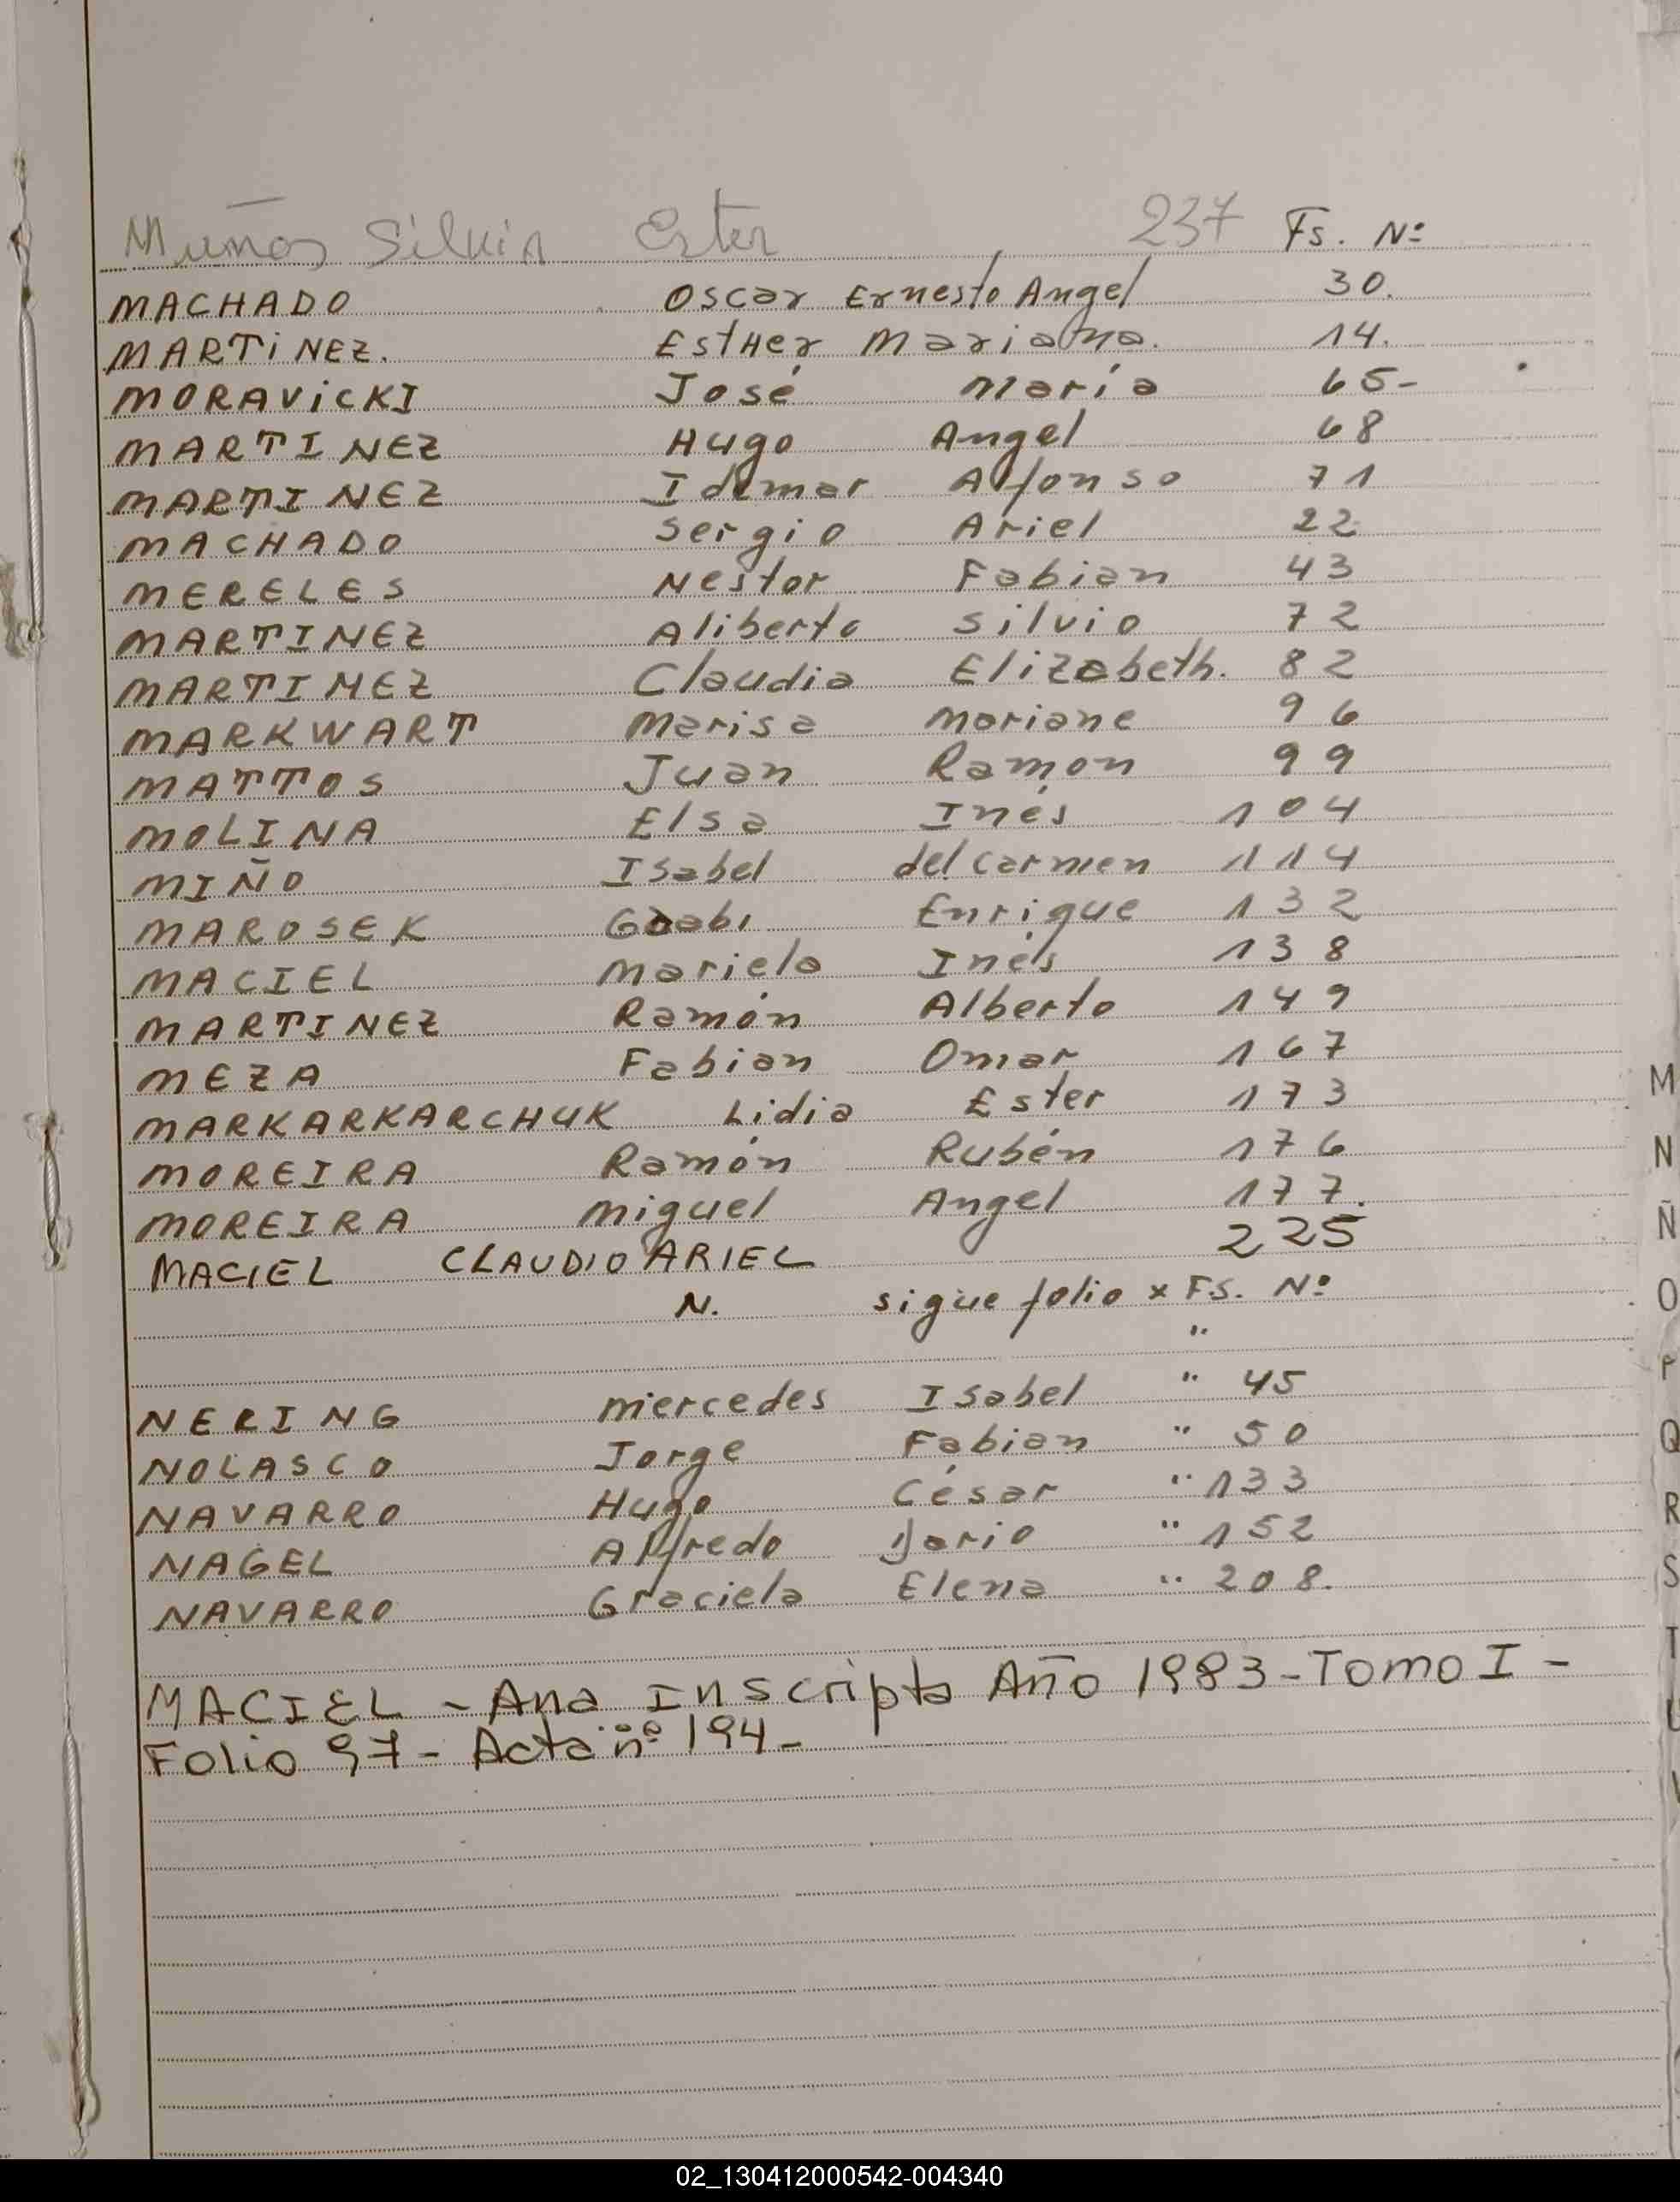 Muños Silvia Ester 237 Fs. Nº
MACHADO Oscar Ernesto Angel 30.
MARTiNEZ. EstHer Mariana. 14.
MORAViCKI José María 65-
MARTINEZ Hugo Angel 68
MARTINEZ Idemar Alfonso 71
MACHADO Sergio Ariel 22
MERELES Nestor Fabian 43
MARTINEZ Aliberto Silvio 72
MARTINEZ Claudia Elizabeth. 82
MARKWART Marisa Mariane 96
MATTOS Juan Ramon 99
MOLINA Elsa Inés 104
MIÑO Isabel del Carmen 114
MAROSEK Enrique 132
MACIEL Mariela Inés 138
MARTINEZ Ramón Alberto 149
MEZA Fabian Omar 167
MARKARKARCHUK Lidia Ester 173
MOREIRA Ramón Rubén 176
MOREIRA Miguel Angel 177.
MACIEL CLAUDIO ARIEL 225
N. sigue folio x Fs. Nº
"
NERING Mercedes Isabel " 45
NOLASCO Jorge Fabian " 50
NAVARRO Hugo César " 133
NAGEL Alfredo Dario " 152
NAVARRO Graciela Elena " 208.
MACIEL - Ana Inscripta Año 1983 - Tomo I -
Folio 97 - Acta nº 194 -
M
N
Ñ
O
P
Q
R
S
T
U
V
02_130412000542-004340